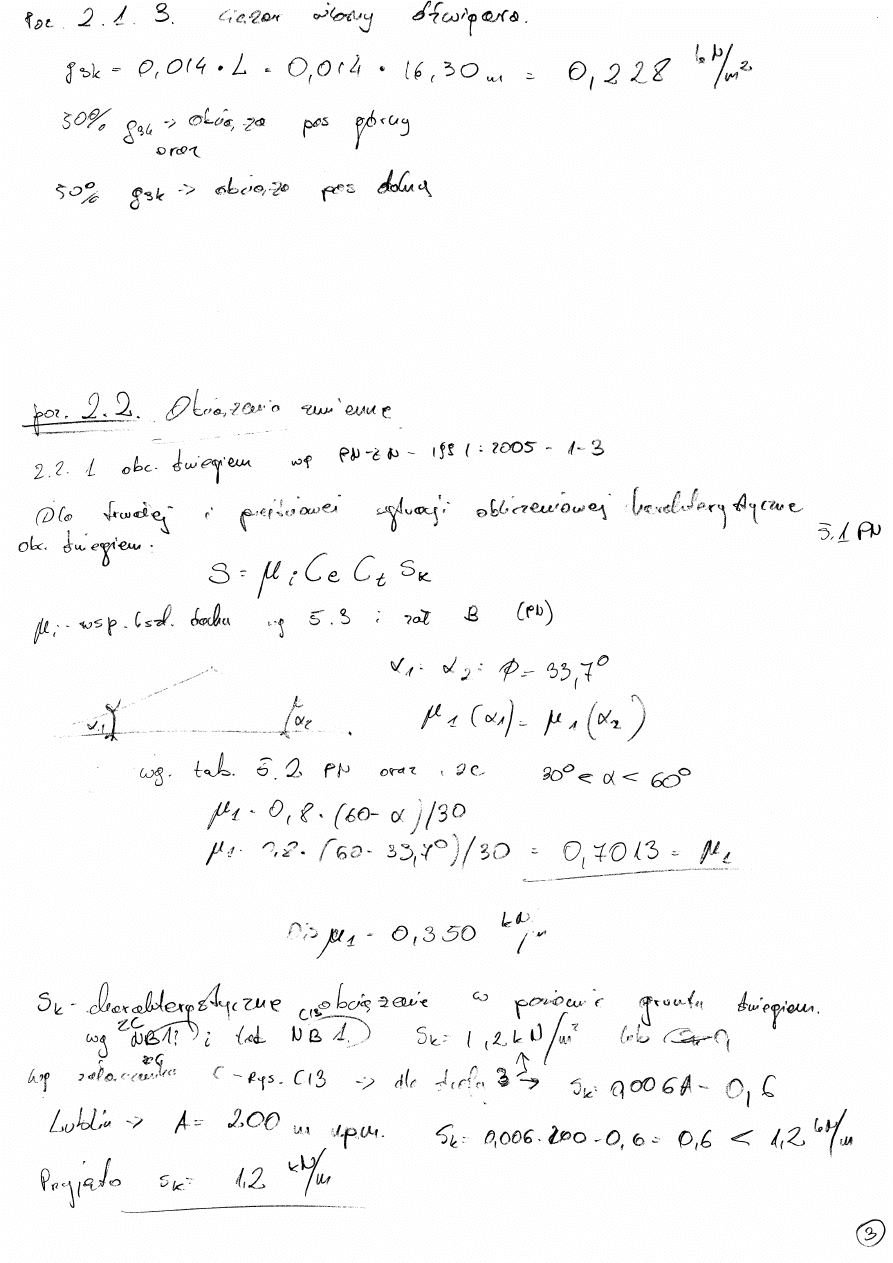 Poz. 2.1.3. Ciężar własny dźwigara.
gsk = 0,014 · L = 0,014 · 16,30 m = 0,228 kN/m²
50% gsk -> obciąża pas górny
oraz
50% gsk -> obciąża pas dolny
poz. 2.2. Obciążenia zmienne
2.2.1 obc. śniegiem wg PN-EN-1991:2005-1-3
Dla trwałej i przejściowej sytuacji obliczeniowej charakterystyczne
5.1 PN
obc. śniegiem:
S = μi Ce Ct Sk
μi - wsp. kszt. dachu wg 5.3 i zał B (PN)
α1 = α2 = φ = 33,7°
μ1(α1) = μ1(α2)
α1 α2
wg. tab. 5.2 PN oraz 30° < α < 60°
μ1 = 0,8 · (60 - α)/30
μ1 = 0,8 · (60 - 33,7°)/30 = 0,7013 = μ1
0,5 μ1 = 0,350 kN/m
Sk - charakterystyczne obciążenie w poziomie gruntu śniegiem.
wg NB1; i tab NB 1. Sk = 1,2 kN/m² lub
wg załącznika C - rys. C13 -> dla strefy 3 -> Sk = 0,006A - 0,6
Lublin -> A = 200 m npm. Sk = 0,006·200 - 0,6 = 0,6 < 1,2 kN/m
Przyjęto sk = 1,2 kN/m
3